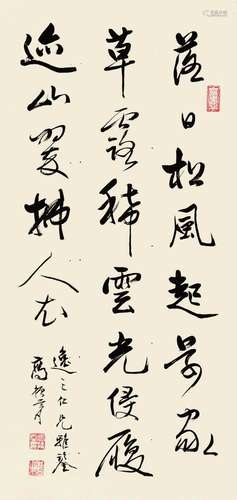 落日松風起還家
草露稀雲光侵履
迹山翠拂人衣
逸之仁兄雅鑒
高振霄